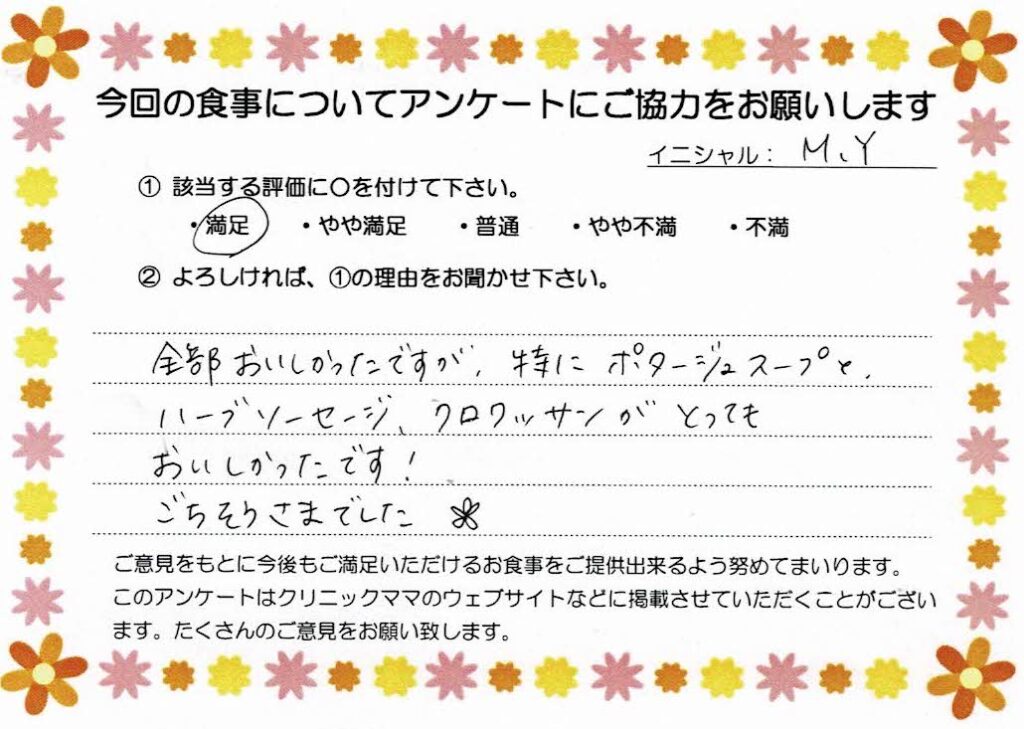 今回の食事についてアンケートにご協力をお願いします
イニシャル： M、Y
① 該当する評価に〇を付けて下さい。
・満足 ・やや満足 ・普通 ・やや不満 ・不満
② よろしければ、①の理由をお聞かせ下さい。
全部おいしかったですが、特にポタージュスープと、
ハーブソーセージ、クロワッサンがとっても
おいしかったです！
ごちそうさまでした
ご意見をもとに今後もご満足いただけるお食事をご提供出来るよう努めてまいります。
このアンケートはクリニックママのウェブサイトなどに掲載させていただくことがござい
ます。たくさんのご意見をお願い致します。